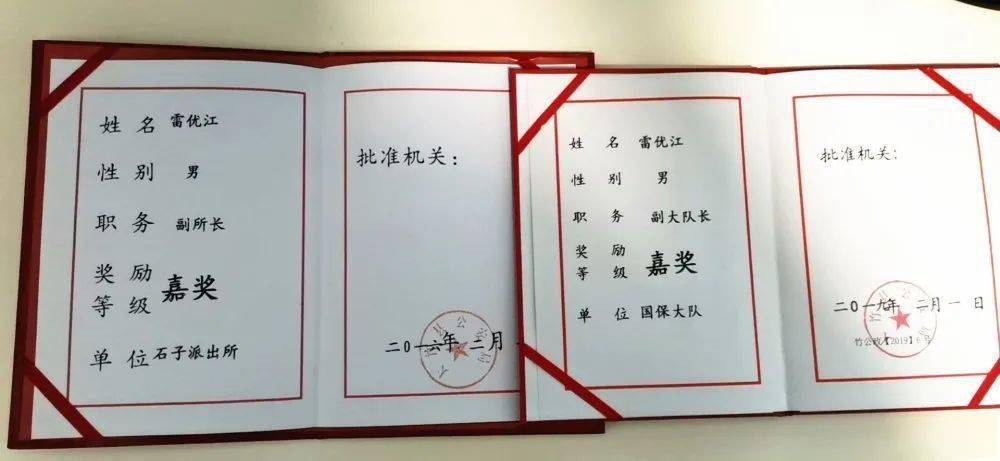 姓 名 雷优江
性 别 男
职 务 副所长
奖 励
等 级 嘉奖
单 位 石子派出所
批准机关：
二〇一六年 二月
姓 名 雷优江
性 别 男
职 务 副大队长
奖 励
等 级 嘉奖
单 位 国保大队
批准机关：
二〇一九年 二月 一 日
竹公政【2019】6号